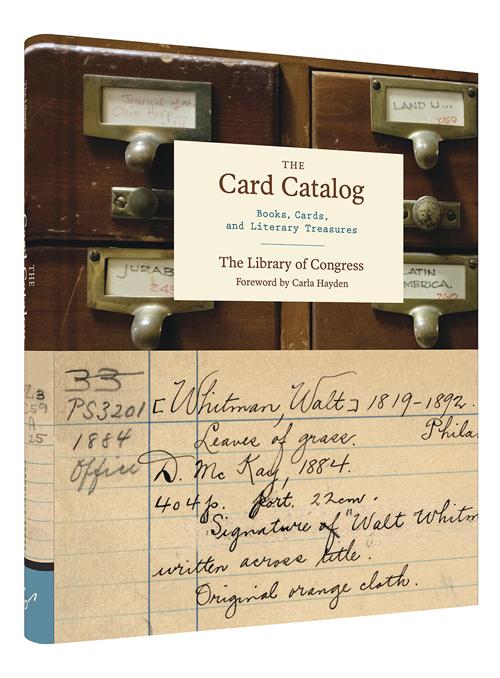 Journal of
Ohio Herp...
LAND U...
259
THE
Card Catalog
Books, Cards,
and Literary Treasures
The Library of Congress
Foreword by Carla Hayden
JURAS
LATIN
AMERICA.
260
THE
33
PS3201
1884
Office
[Whitman, Walt] 1819-1892.
Leaves of grass. Phila
D. Mc Kay, 1884.
404 p. port. 22cm.
Signature of "Walt Whitm
written across title.
Original orange cloth.
Z3
C59
A
25